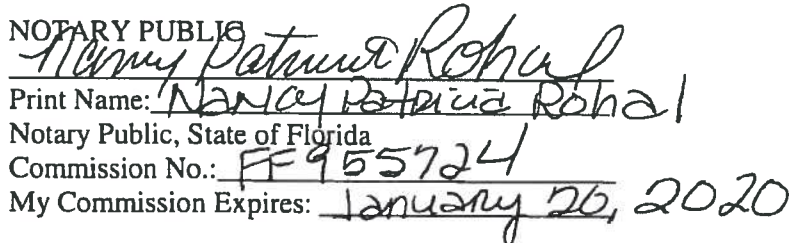 NOTARY PUBLIC
Nancy Patricia Rohal
Print Name: Nancy Patricia Rohal
Notary Public, State of Florida
Commission No.: FF955724
My Commission Expires: January 20, 2020